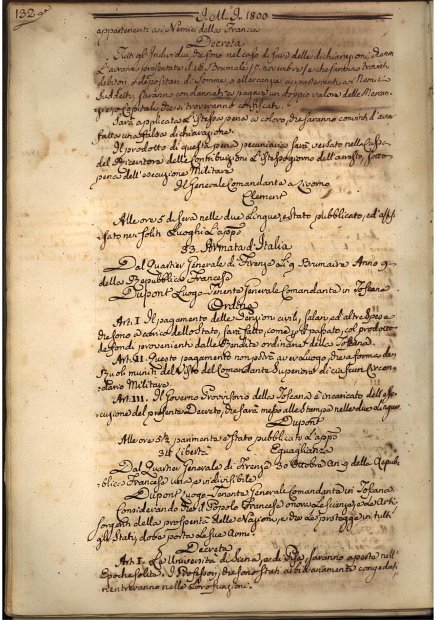 132
I. M. I. 1800
appartenenti ai Nemici della Francia
Decreta
Tutti gl'Individui, che sono nel caso di fare delle dichiarazioni, e non
l'avranno presentate il 16. Brumale (7. novembre) e che saranno trovati
debitori, o depositari di somme, o altre appartenenti ai Nemici
suddetti, saranno condannati a pagare un doppio valore delle
e Capitali, che si troveranno confiscati.
Sarà applicata l'istessa pena a coloro, che saranno convinti d'aver
fatta una falsa dichiarazione.
Il prodotto di questa pena pecuniaria sarà versato nella Cassa
del Ricevitore delle Contribuzioni l'istesso giorno dell'arresto, sotto
pena dell'esecuzione Militare
Il Generale Comandante a Livorno
Clement
Alle ore 5 di sera nelle due lingue, è stato pubblicato, ed affis-
so ne' soliti Luoghi l'app.o
83. Armata d'Italia
Dal Quartier Generale di Firenze li 9 Brumaire Anno 9
della Repubblica Francese
Dupont Luogo-Tenente Generale Comandante in Toscana
Ordina
Art. I. Il pagamento delle Pensioni civili, salari, ed altre spese
che sono a carico dello Stato, sarà fatto, come per il passato, col prodotto
de' fondi provenienti dalle Rendite ordinarie della Toscana.
Art. II. Questo pagamento non potrà aver luogo, che a forma dei
Ruoli muniti del Visto del Comandante Superiore di ciascun Circon-
dario Militare
Art. III. Il Governo Provvisorio della Toscana è incaricato dell'ese-
cuzione del presente Decreto, che sarà messo alle stampe nelle due lingue
Dupont
Alle ore 5½ parimente è stato pubblicato l'app.o
84 Libertà Eguaglianza
Dal Quartier Generale di Firenze 30 Ottobre An. 9 della Repub-
blica Francese una e indivisibile
Dupont Luogo-Tenente Generale Comandante in Toscana
Considerando che il Popolo Francese onora le scienze, e le Arti
sorgenti della prosperità delle Nazioni, e che le protegge in tutti
gli Stati, dove porta le sue Armi
Decreta
Art. I. Le Università di Siena, e di Pisa, saranno aperte nell'
Epoche solite. I Professori, che sono stati arbitrariamente congedati
rientreranno nelle loro funzioni.